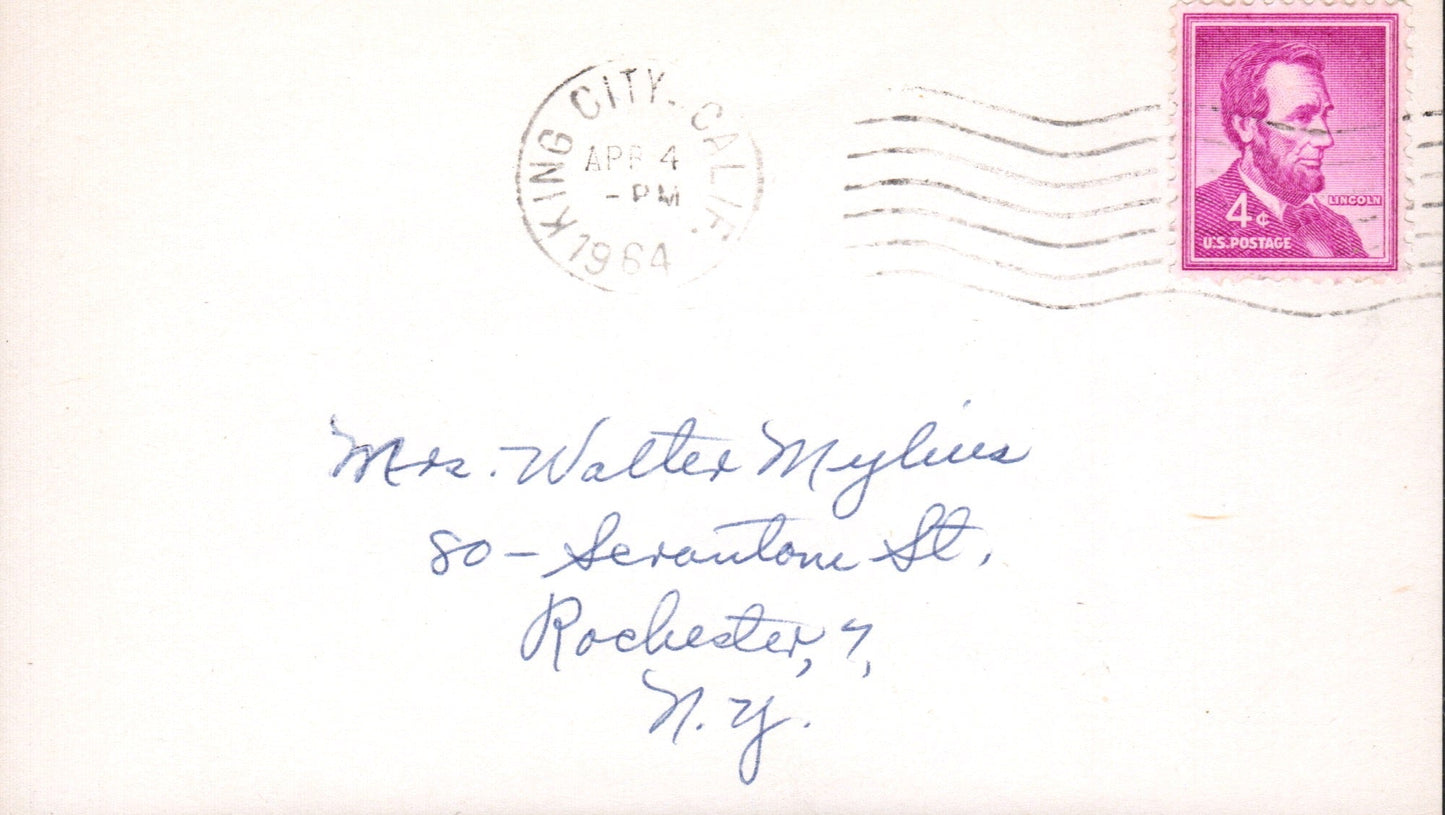 KING CITY. CALIF.
APR 4
- PM
1964
LINCOLN
4¢
U.S. POSTAGE
Mrs. Walter Mylius
80 - Scrantom St.
Rochester, 7,
N. Y.